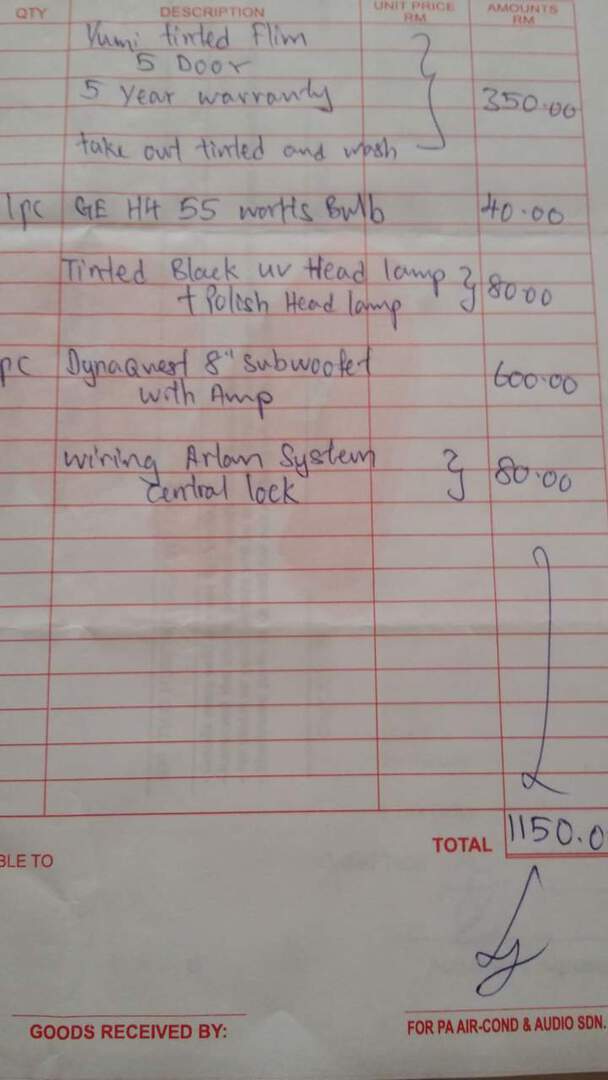 QTY DESCRIPTION UNIT PRICE RM AMOUNTS RM
Yumi tinted Flim
5 Door
5 Year warranty 350.00
take out tinted and wash
1pc GE H4 55 wortts Bulb 40.00
Tinted Black uv Head lamp
+ Polish Head lamp 80.00
pc DynaQuest 8" subwoofer 600.00
with Amp
wiring Arlam System
central lock 80.00
TOTAL 1150.0
BLE TO
GOODS RECEIVED BY: FOR PA AIR-COND & AUDIO SDN.